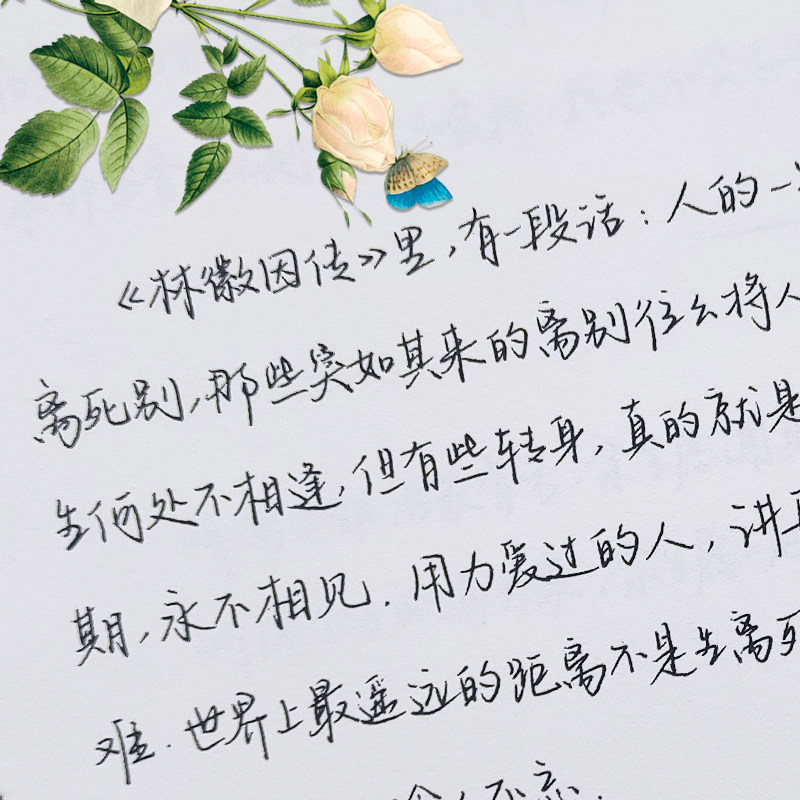 《林徽因传》里,有一段话:人的一
离死别,那些突如其来的离别往往将人
生何处不相逢,但有些转身,真的就是
期,永不相见.用力爱过的人,讲
难.世界上最遥远的距离不是生离死
不忘.